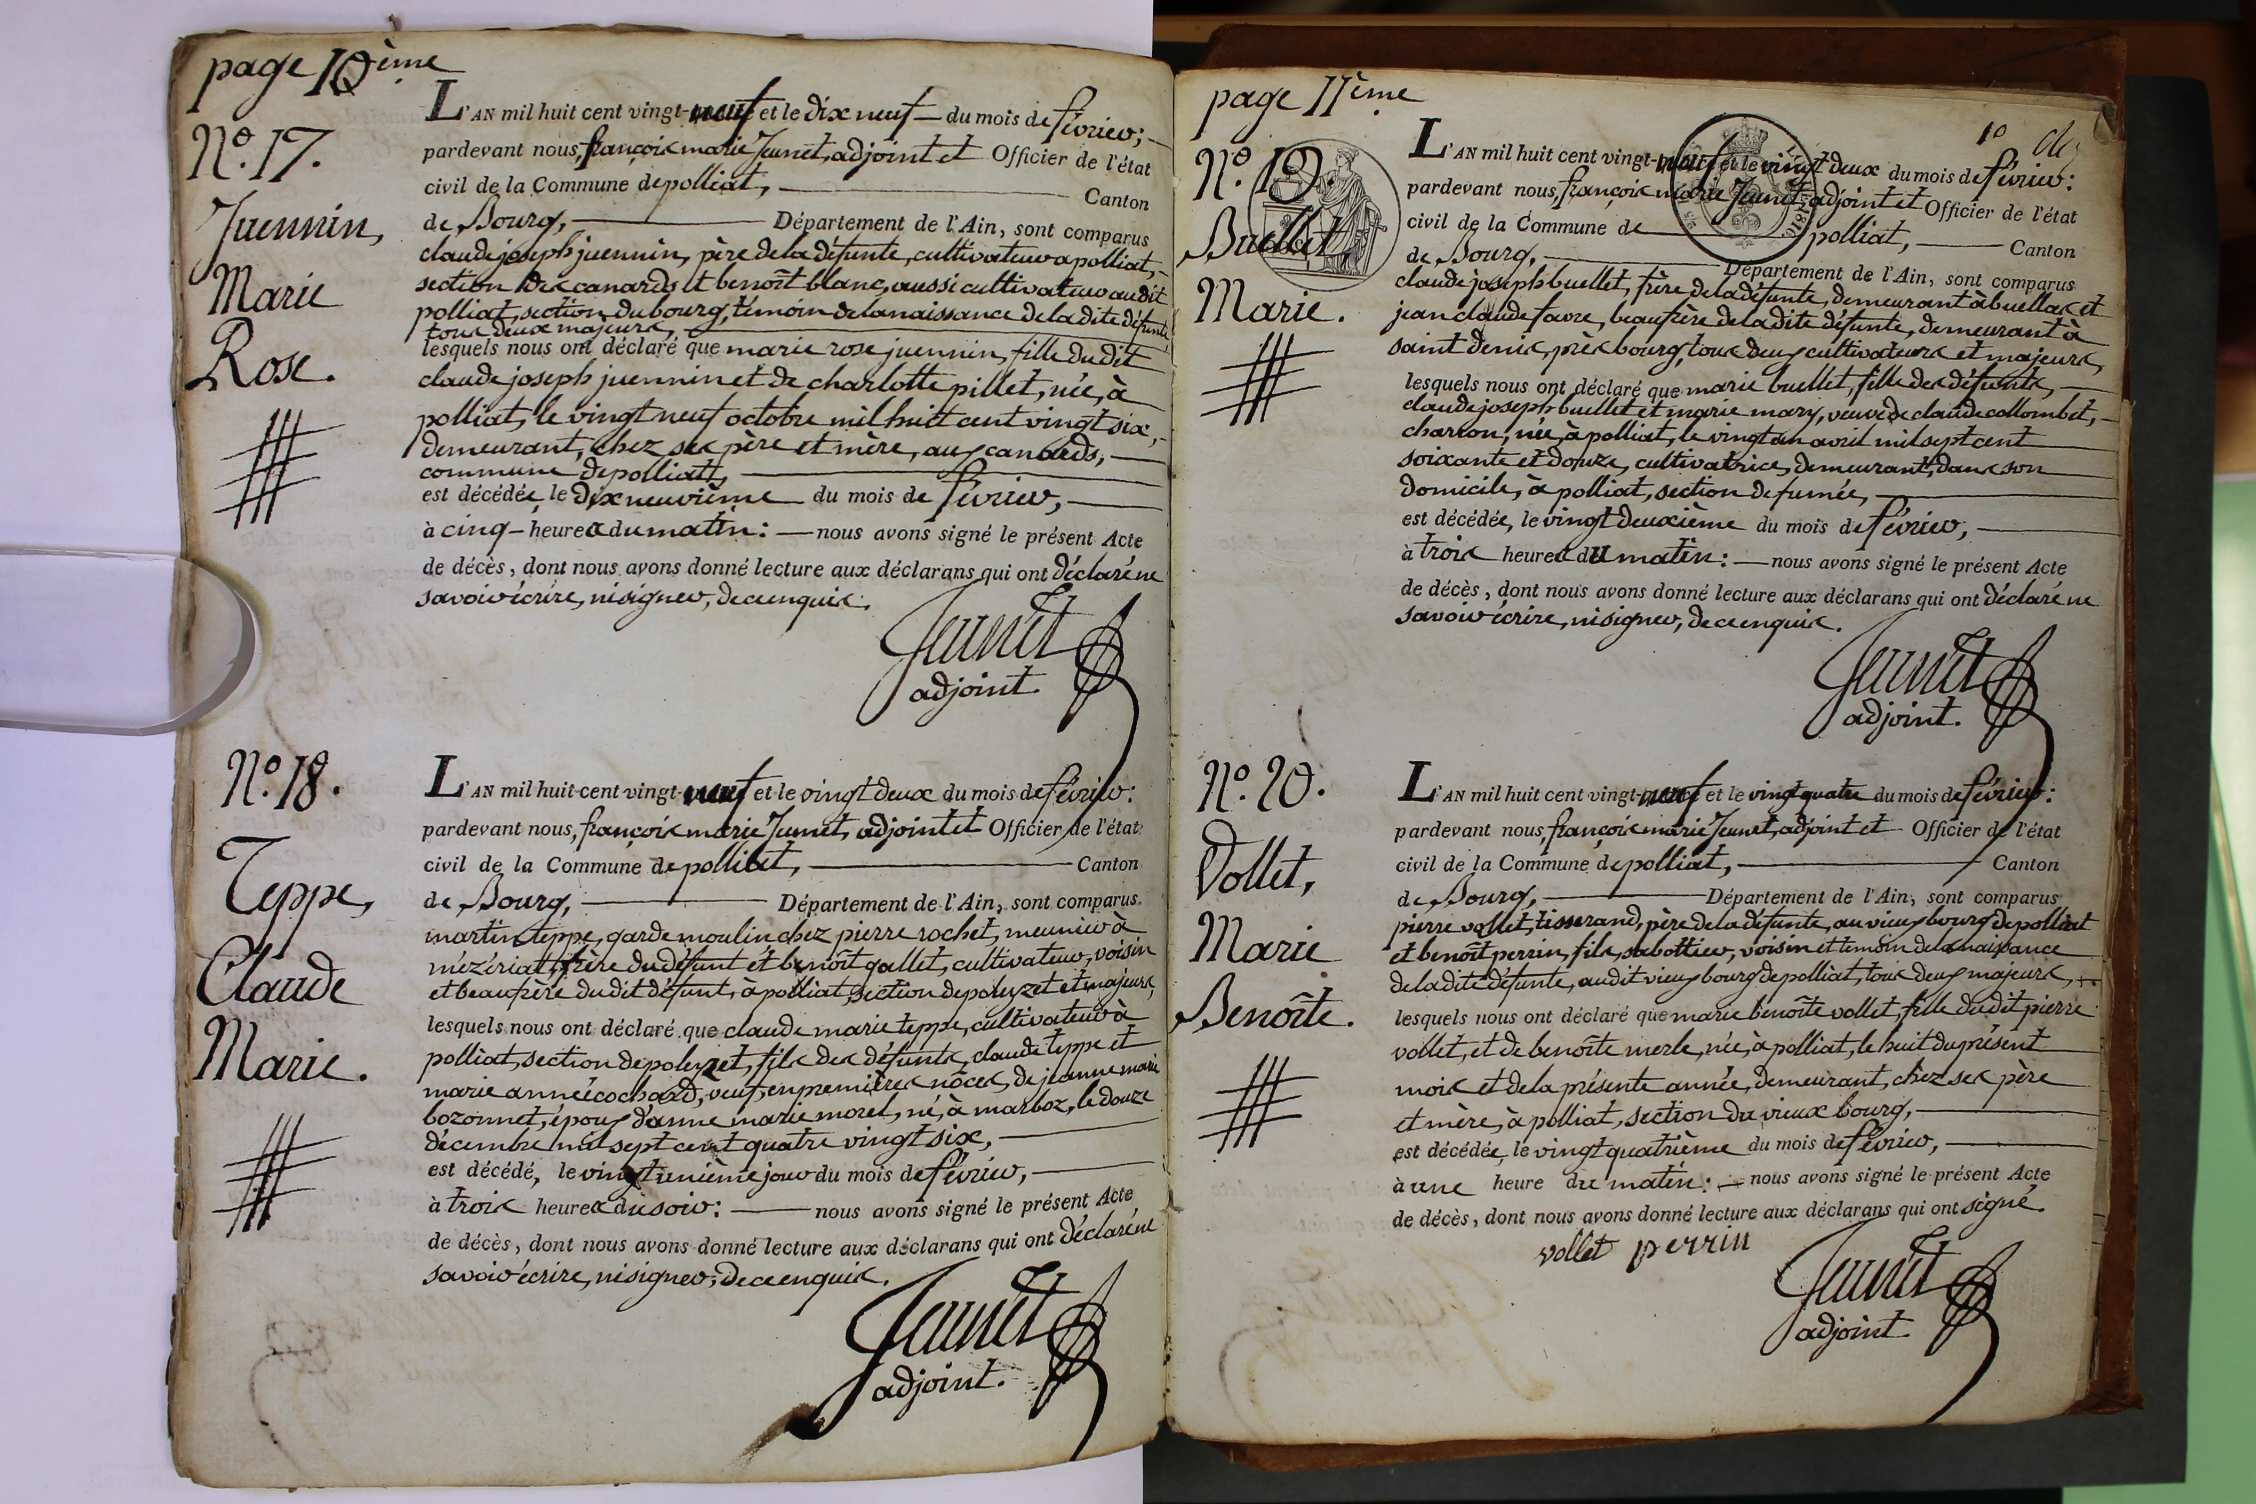 page 10ème
N.º 17.
Juennin,
Marie
Rose.
L'AN mil huit cent vingt-neuf et le dix neuf du mois de février;
pardevant nous, françois marie Jeunet, adjoint et Officier de l'état
civil de la Commune de polliat, Canton
de Bourg, Département de l'Ain, sont comparus
claude joseph juennin, père de la défunte, cultivateur a polliat,
section des canards et benoît blanc, aussi cultivateur audit
polliat, section du bourg, témoin de la naissance de la dite défunte
tous deux majeurs,
lesquels nous ont déclaré que marie rose juennin, fille du dit
claude joseph juennin et de charlotte pillet, née, à
polliat, le vingt neuf octobre mil huit cent vingt six,
demeurant, chez ses père et mère, aux canards,
commune de polliat,
est décédée, le dix neuvième du mois de février,
à cinq heures du matin: nous avons signé le présent Acte
de décès, dont nous avons donné lecture aux déclarans qui ont déclaré ne
savoir écrire, ni signer, de ce enquis.
Jeunet
adjoint.
N.º 18.
Teppe,
Claude
Marie.
L'AN mil huit cent vingt-neuf et le vingt deux du mois de février:
pardevant nous, françois marie Jeunet, adjoint et Officier de l'état
civil de la Commune de polliat, Canton
de Bourg, Département de l'Ain, sont comparus
martin teppe, garde moulin chez pierre rochet, meunier à
mézériat, frère du défunt et benoît gallet, cultivateur, voisin
et beaufrère du dit défunt, à polliat, section de polezet et majeurs,
lesquels nous ont déclaré que claude marie teppe, cultivateur à
polliat, section de polezet, fils des défunts, claude teppe et
marie année cochard, veuf, en premières nôces, de jeanne marie
bozonnet, époux d'anne marie morel, né, à marboz, le douze
décembre mil sept cent quatre vingt six,
est décédé, le vingt unième jour du mois de février,
à trois heures du soir: nous avons signé le présent Acte
de décès, dont nous avons donné lecture aux déclarans qui ont déclaré ne
savoir écrire, ni signer, de ce enquis.
Jeunet
adjoint.
page 11ème
N.º 19.
Buellet,
Marie.
1º
L'AN mil huit cent vingt-neuf et le vingt deux du mois de février:
pardevant nous, françois marie Jeunet, adjoint et Officier de l'état
civil de la Commune de polliat, Canton
de Bourg, Département de l'Ain, sont comparus
claude joseph buellet, frère de la défunte, demeurant à buellas et
jean claude favre, beaufrère de la dite défunte, demeurant à
saint denis, près bourg, tous deux cultivateurs et majeurs,
lesquels nous ont déclaré que marie buellet, fille des défunts,
claude joseph buellet et marie mary, veuve de claude collombet,
charron, née, à polliat, le vingt un avril mil sept cent
soixante et douze, cultivatrice, demeurant, dans son
domicile, à polliat, section de fumée,
est décédée, le vingt deuxième du mois de février,
à trois heures du matin: nous avons signé le présent Acte
de décès, dont nous avons donné lecture aux déclarans qui ont déclaré ne
savoir écrire, ni signer, de ce enquis.
Jeunet
adjoint.
N.º 20.
Vollet,
Marie
Benoîte.
L'AN mil huit cent vingt-neuf et le vingt quatre du mois de février:
pardevant nous, françois marie Jeunet, adjoint et Officier de l'état
civil de la Commune de polliat, Canton
de Bourg, Département de l'Ain, sont comparus
pierre vollet, tisserand, père de la défunte, au vieux bourg de polliat
et benoît perrin, fils, sabottier, voisin et temoin de la naissance
de la dite défunte, audit vieux bourg de polliat, tous deux majeurs,
lesquels nous ont déclaré que marie benoîte vollet, fille du dit pierre
vollet, et de benoîte merle, née, à polliat, le huit du présent
mois et de la présente année, demeurant, chez ses père
et mère, à polliat, section du vieux bourg,
est décédée, le vingt quatrième du mois de février,
à une heure du matin: nous avons signé le présent Acte
de décès, dont nous avons donné lecture aux déclarans qui ont signé.
vollet perrin
Jeunet
adjoint